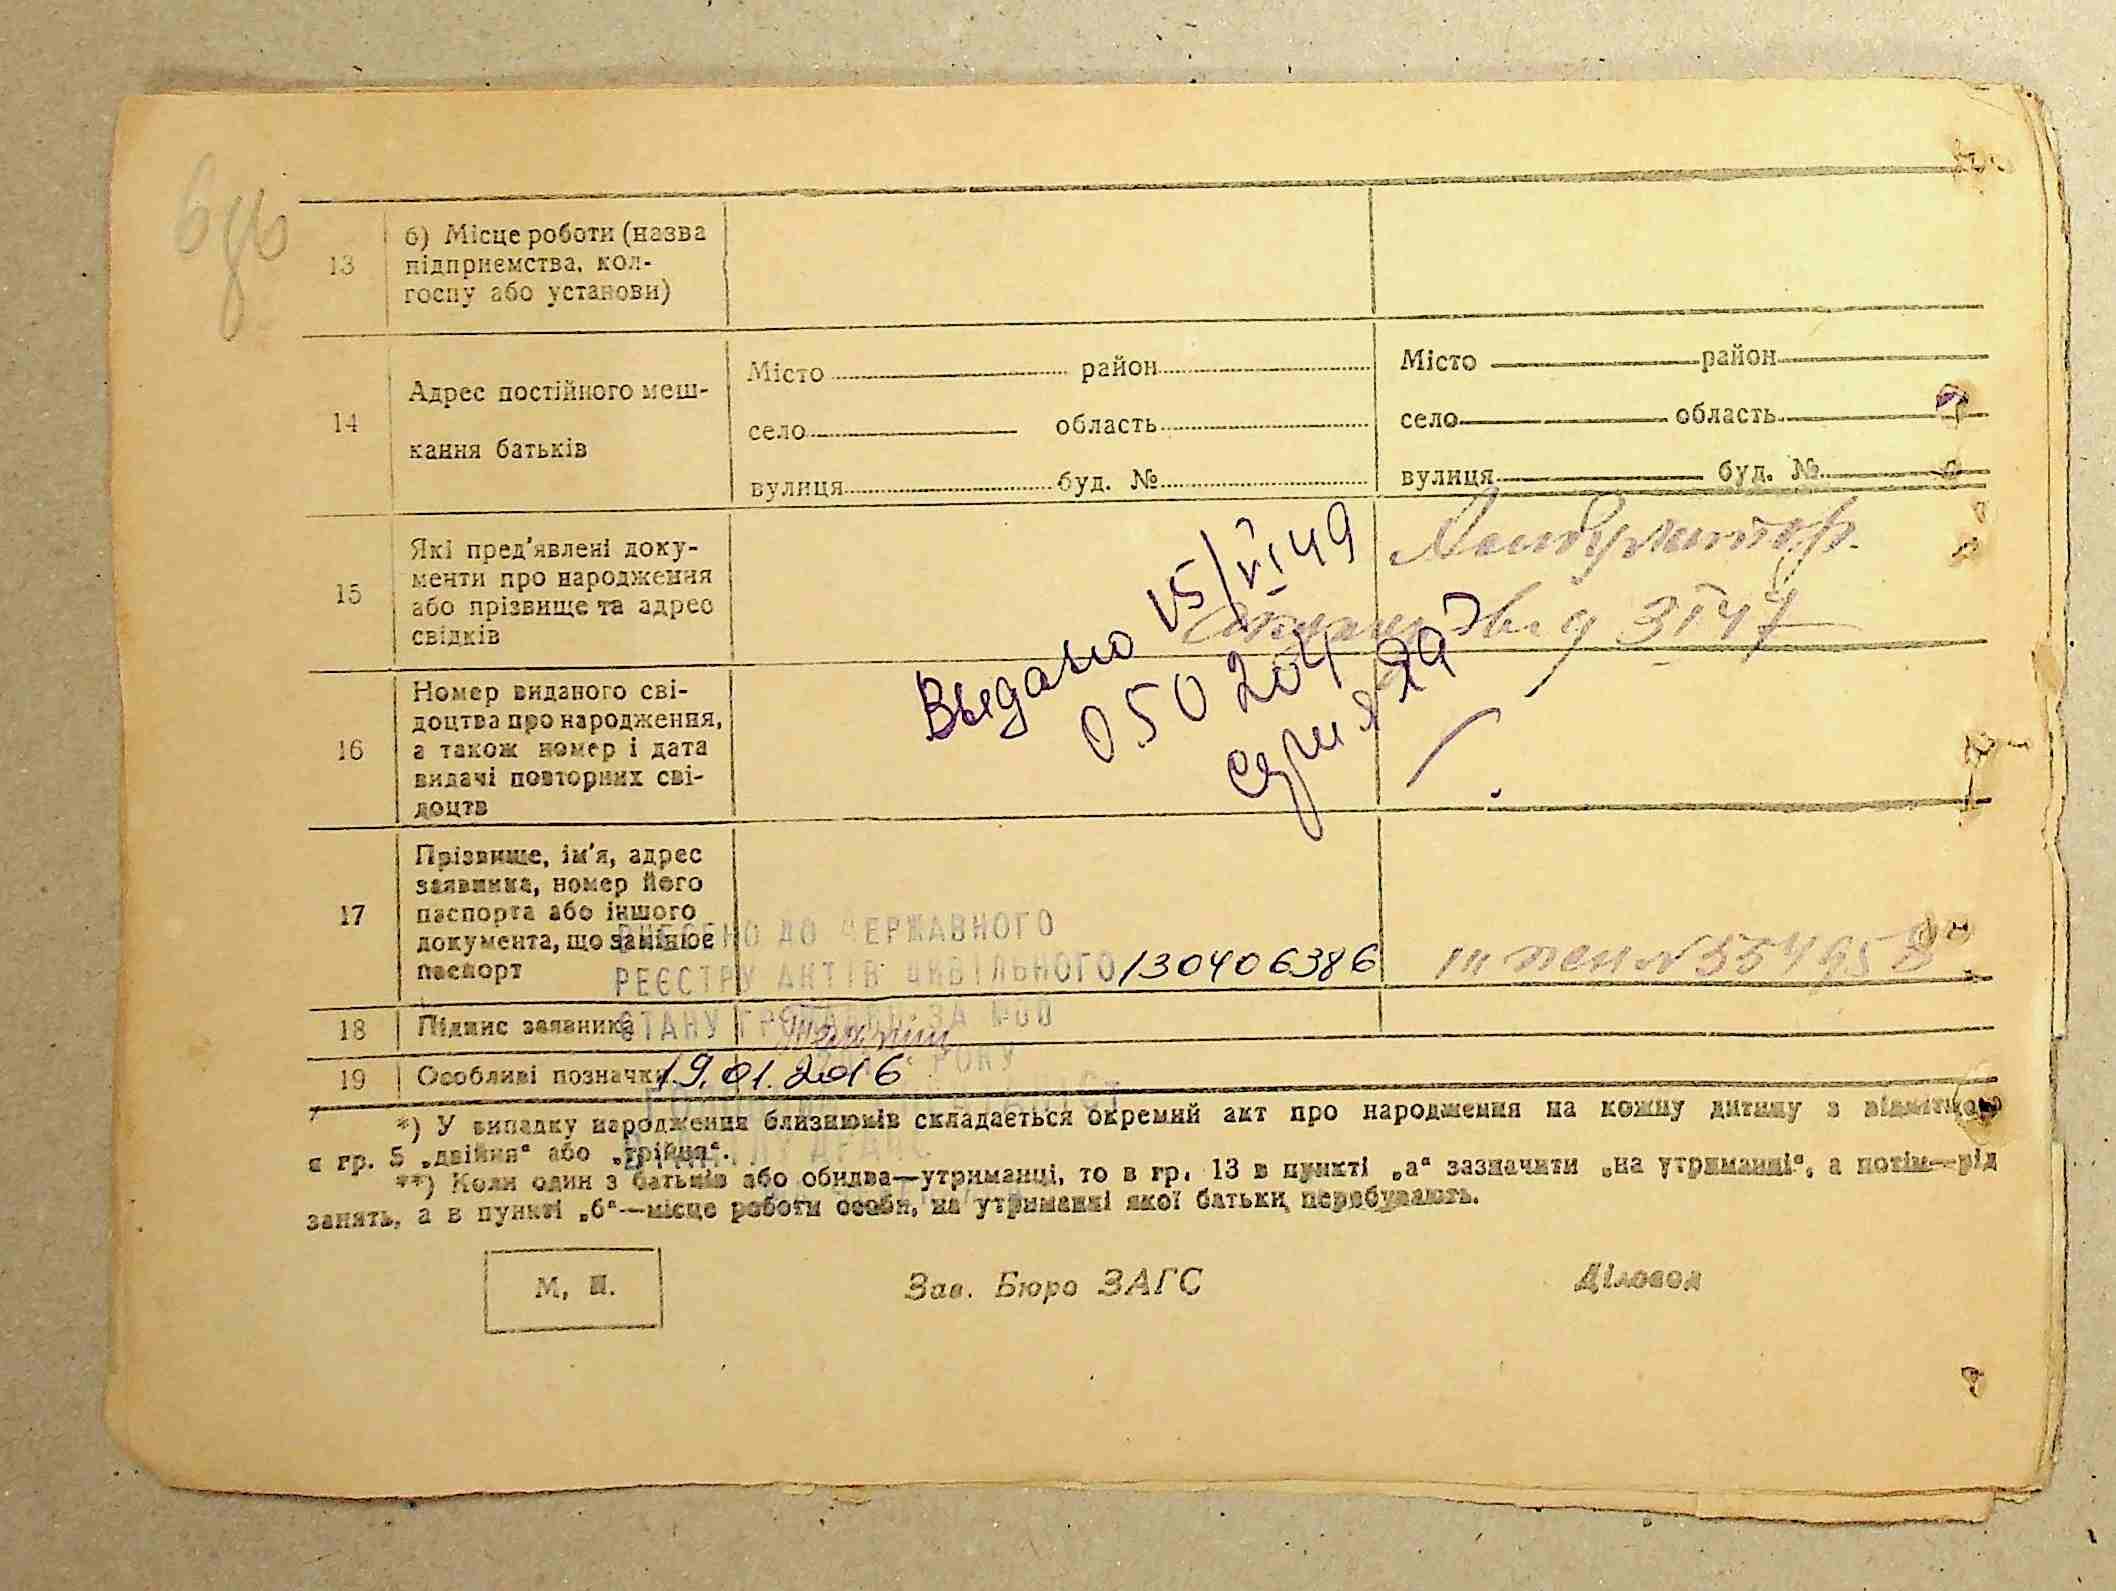 13
б) Місце роботи (назва
підприємства, кол-
госпу або установи)
14
Адрес постійного меш-
кання батьків
Місто район
село область
вулиця буд. №
Місто район
село область
вулиця буд. №
15
Які пред'явлені доку-
менти про народження
або прізвище та адрес
свідків
Выдано 15/VI 49
050204
серия
3 I 47
16
Номер виданого сві-
доцтва про народження,
а також номер і дата
видачі повторних сві-
доцтв
17
Прізвище, ім'я, адрес
заявника, номер його
паспорта або іншого
документа, що замінює
паспорт
ВНЕСЕНО ДО ДЕРЖАВНОГО
РЕЄСТРУ АКТІВ ЦИВІЛЬНОГО 130406386
СТАНУ ГРОМАДЯН ЗА №
РОКУ
18
Підпис заявника
19
Особливі позначки
19.01.2016
*) У випадку народження близнюків складається окремий акт про народження на кожну дитину з відміткою
в гр. 5 „двійня“ або „трійня“.
**) Коли один з батьків або обидва—утриманці, то в гр. 13 в пункті „а“ зазначити „на утриманні“, а потім—рід
занять, а в пункті „б“—місце роботи особи, на утриманні якої батьки перебувають.
М. П.
Зав. Бюро ЗАГС
Діловод